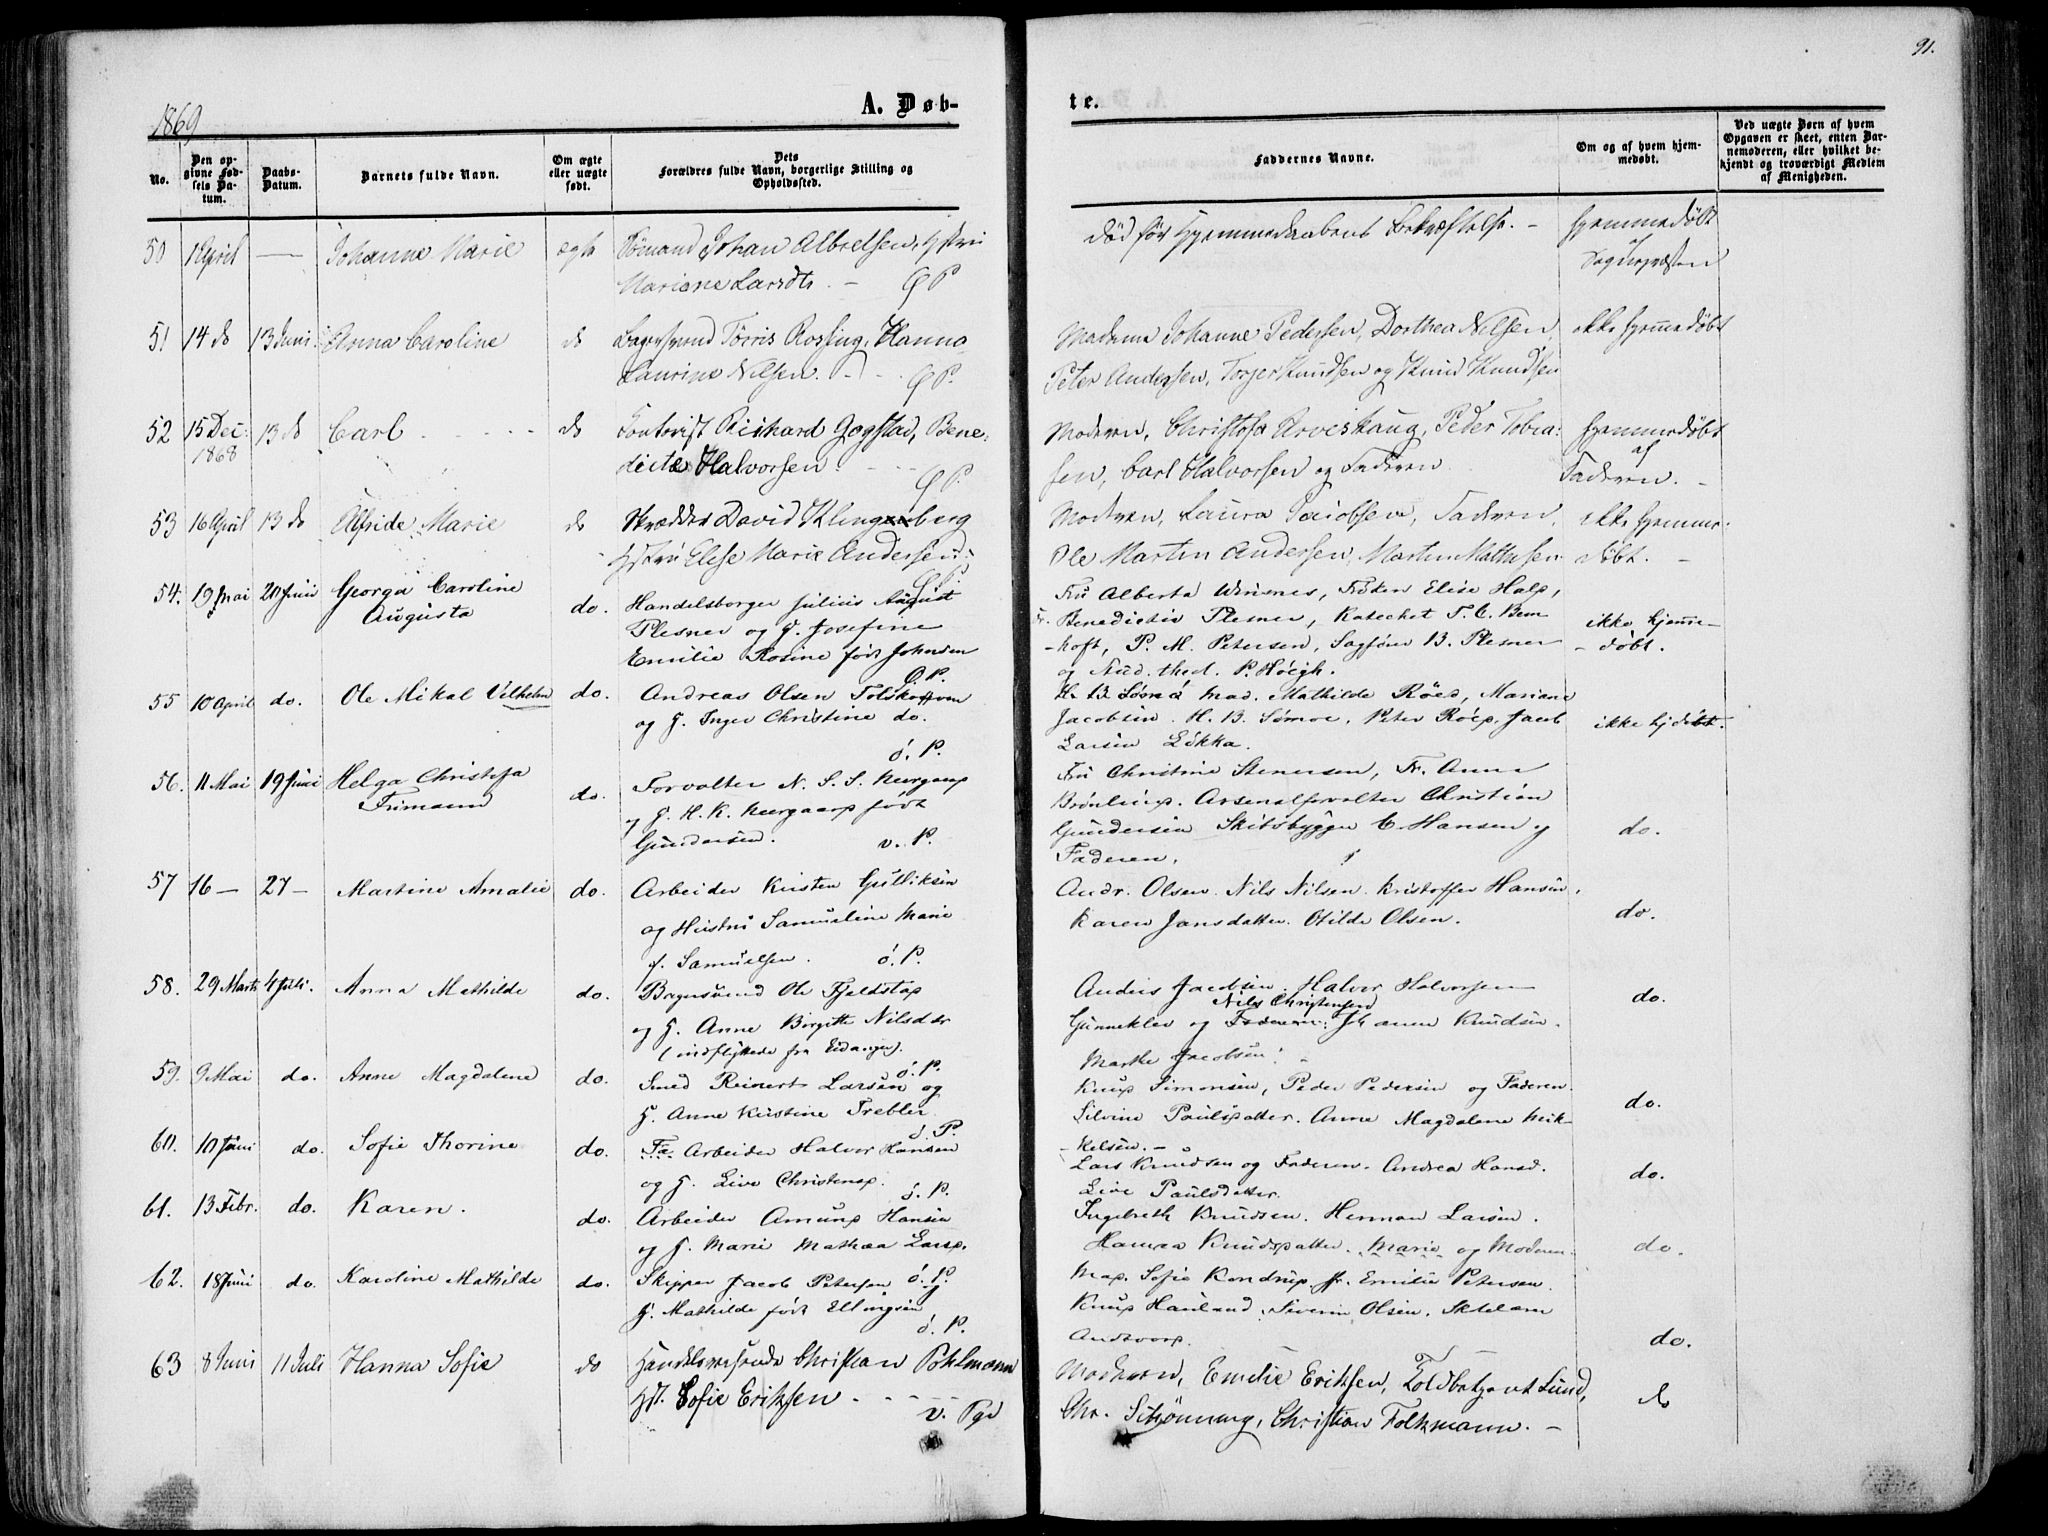 91.
1869
A. Døb-
te.
No.
Den opgivne Fødsels Datum.
Daabs-Datum.
Barnets fulde Navn.
Om ægte eller uægte født.
Dets Forældres fulde Navn, borgerlige Stilling og Opholdssted.
Faddernes Navne.
Om og af hvem hjemmedøbt.
Ved uægte Børn af hvem Opgaven er skeet, enten Barnemoderen, eller hvilket bekjendt og troværdigt Medlem af Menigheden.
50 1 April — Johanne Marie ægte Sømand Johan
Mariane Larsdtr. — ØP
død før Hjemmedaabens Bekræftelse. — hjemmedøbt
af Sognepræsten
51 14 do 13 Juni Anna Caroline do Torris Rossing, Hanna
Laurine Nilsen. ØP.
Madame Johanne Pedersen, Dorthea Nilsen, ikke hjemmedøbt
Peter Andersen, Torjer Knudsen og Knud Knudsen
52 15 Dec: 1868 13 do Carl do Contorist Richard Gogstad, Bene-
dicte Halvorsen ØP.
Moderen, Christofa Arveskaug, Peder Tobia-
sen, Carl Halvorsen og Faderen. hjemmedøbt af Faderen. —
53 16 April 13 do Alfride Marie do Skrædder David Klingenberg
Hstru Elise Marie Andersen. ØP.
Moderen, Laura Jacobsen, Faderen,
Ole Martin Andersen, Martin Mathisen ikke hjemme-
døbt. —
54. 19 Mai 20 Juni Georga Caroline
Augusta do. Handelsborger Julius August
Plesner og H. Josefine
Emilie Rosine født Johnsen
Ø.P.
Fru Alberta Wesenes, Frøken Elise Hals,
Benedictis Plesner, Katechet T. C. Bern
-hoft, P. M. Petersen, Sagfører B. Plesner
og Stud. theol. P. Høegh. ikke hjemme-
- døbt.
55 10 April do. Ole Mikal Vilhelm do. Andreas Olsen
og H. Inger Christine do.
ö. P.
mad. Mathilde Röed, Mariane
Jacobsen. H. B. Peter Röed, Jacob
Larsen Lökka. ikke hjdöbt.
56. 11 Mai 19 Juni Helga Christofa
Frimann do. Forvalter N. S. S. Neergaard
og H. H. K. Neergaard født
Gundersen. v. P.
Fru Christine Stenersen, Fr. Anna
Brönlund. Arsenalforvalter Christian
Gundersen Skibsbygger C. Hansen og
Faderen. do.
57 16 — 27 — Martine Amalie do. Arbeider Kristen Gulliksen
og Hustru Samueline Marie
f. Samuelsen. ö. P.
Andr. Olsen. Nils Nilsen. Kristoffer Hansen.
Karen Jansdatter. Otilde Olsen. do.
58. 29 Marts 4 Juli. Anna Mathilde do. Bagersvend Ole Fjeldstad
og H. Anne Birgitte Nilsdtr
(indflyttede fra Eidanger). ö. P.
Anders Jacobsen. Halvor Halvorsen
Nils Christensen
Gunneklev og Faderen. Johanne Knudsen.
Marthe Jacobsen. do.
59. 9 Mai do. Anne Magdalene do. Smed Reinert Larsen og
H. Anne Kirstine Trebler ö. P.
Knud Simonsen, Peder Pedersen og Faderen.
Silvine Paulsdatter. Anne Magdalene Mik-
kelsen. — do.
60. 10 Juni do. Sofie Thorine do. Fa Arbeider Halvor Hansen
og H. Live Christensd. ö. P.
Lars Knudsen og Faderen. Andrea Hansd.
Live Paulsdatter. do.
61. 13 Febr. do. Karen. do. Arbeider Amund Hansen
og H. Marie Mathea Larsd.
Ingebreth Knudsen. Herman Larsen.
Hanna Knudsdatter. Marie og Moderen. do.
62. 18 Juni do. Karoline Mathilde do. Skipper Jacob Petersen og
H. Mathilde født Ellingsen
ö. P.
Mad. Sofie Kondrup, fr. Emilie Petersen.
Knud Hauland. Siverin Olsen.
do.
63 8 Juni 11 Juli Hanna Sofie do Handelsreisende Christian Pohlmann
Hst. Sofie Eriksen v. Pgd
Moderen, Emilie Eriksen, Toldbetjent Lund,
Chr. Schønning, Christian Folkmann. — do